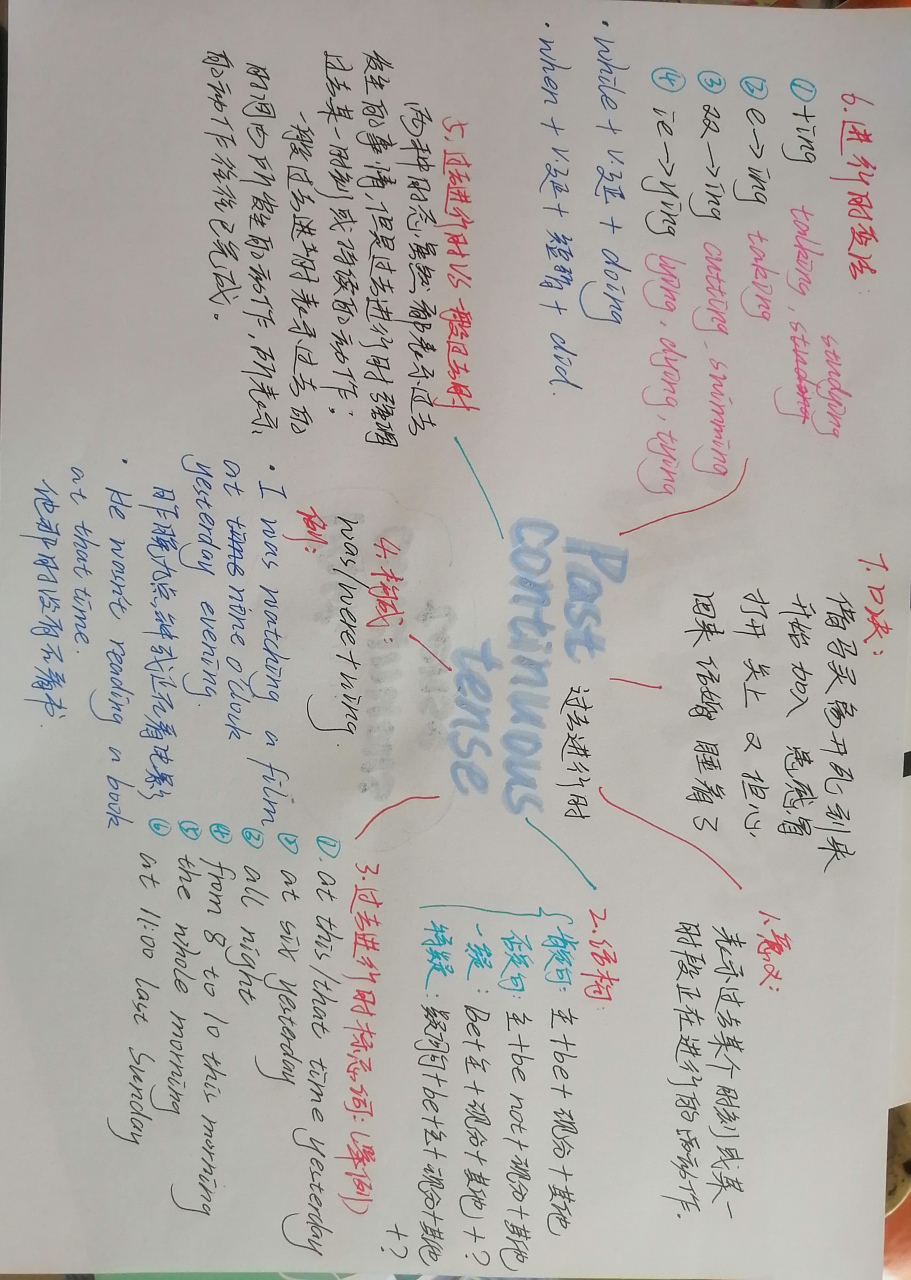 Past
continuous
tense
过去进行时
1.意义:
表示过去某个时刻或某一
时段正在进行的活动作.
2.结构:
肯定句: 主+be+现分+其他
否定句: 主+be not+现分+其他
一疑: Be+主+现分+其他+?
特疑: 疑词+be+主+现分+其他
+?
3.过去进行时标志词:(举例)
①.at this/that time yesterday
② at six yesterday
③ all night
④ from 8 to 10 this morning
⑤ the whole morning
⑥ at 11:00 last Sunday
4.构成:
was/were+Ving.
例:
• I was watching a film
at nine o'clock
yesterday evening.
昨晚九点钟我正在看电影
• He wasn't reading a book
at that time.
他那时没有在看书.
5.过去进行时VS一般过去时
两种时态虽然都表示过去
发生的事情,但是过去进行时强调
过去某一时刻或持续的动作;
一般过去进时表示过去的
时间内所发生的动作,所表示
的动作往往已完成。
6.进行时变法:
① +ing talking, studying
② e→ing taking
③ 双→ing cutting, swimming
④ ie→ying lying, dying, tying
• while + V.延 + doing
• when + V.延 + 短暂 + did.
7.口诀:
借马灵离开死到来
开始加入患感冒
打开关上又担心
回来结婚睡着了